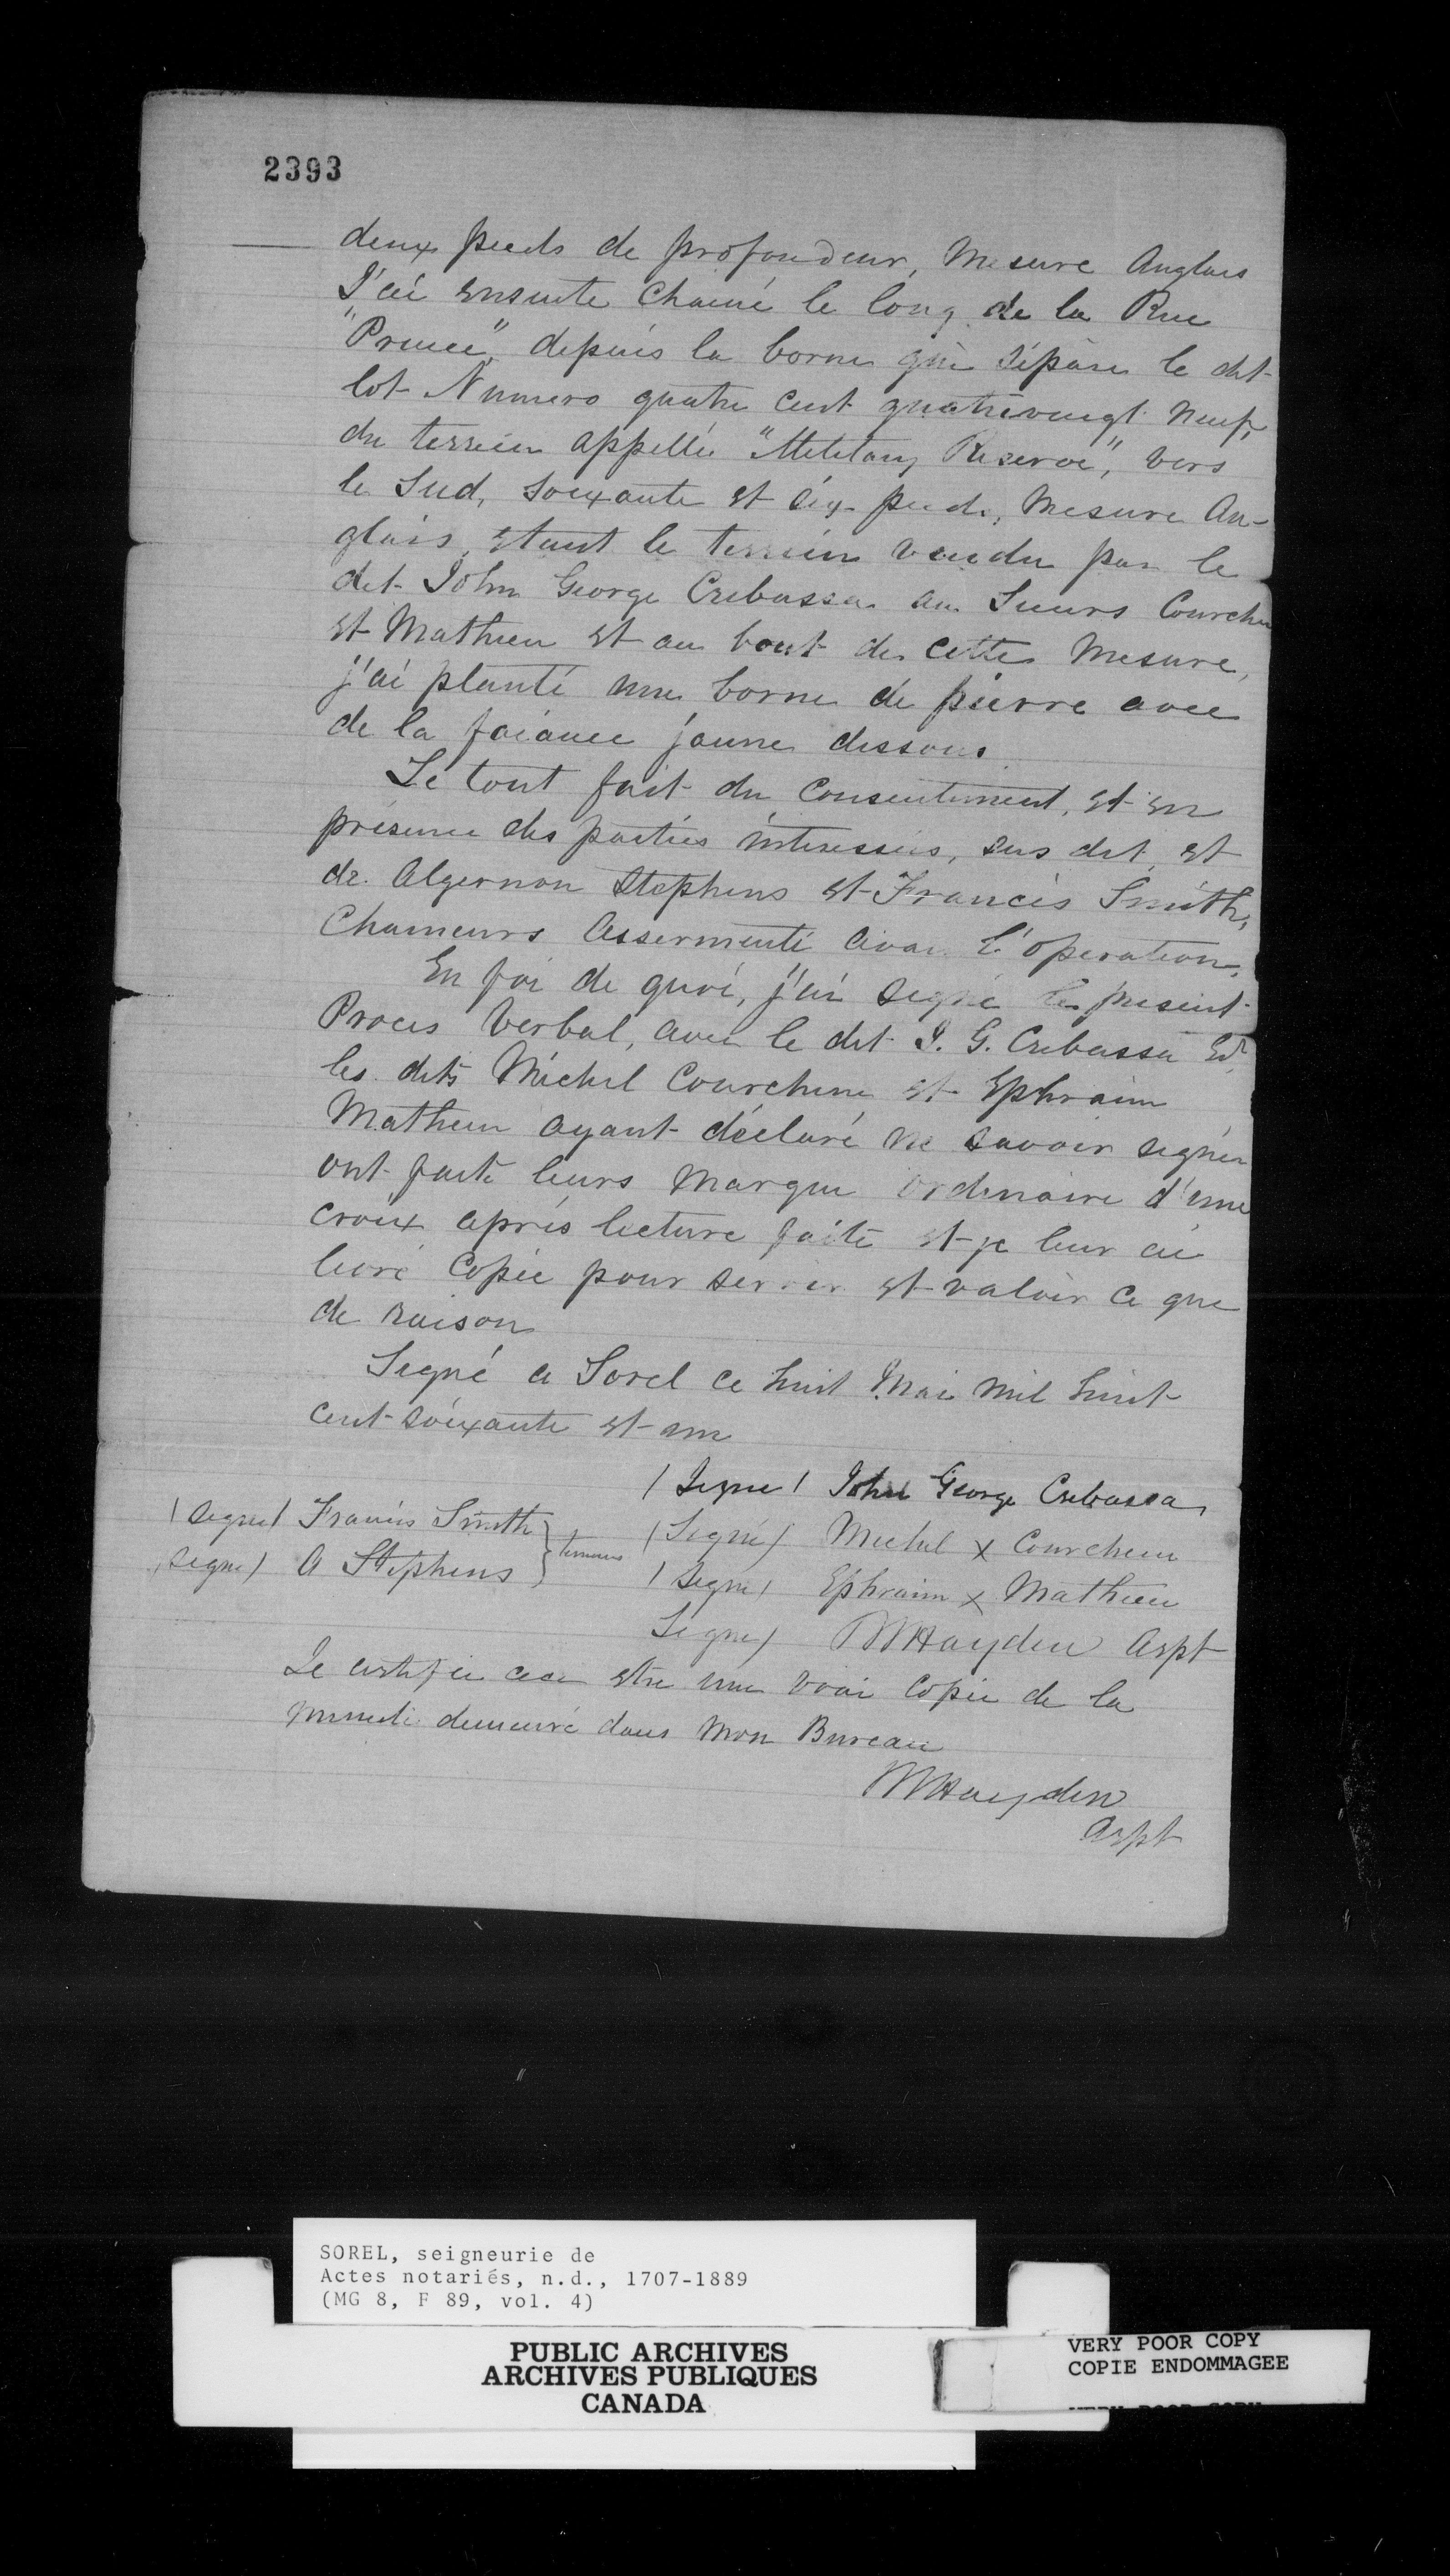 2393
deux pieds de profondeur, Mesure Anglais
J'ai ensuite chainé le long de la Rue
"Prince", depuis la borne qui sépare le dit
lot Numero quatre cent quatrevingt neuf,
du terrein appellée "Military Reserve", vers
le Sud, soixante et six pieds, Mesure An-
glais, etant le terrein vendu par le
dit John George Crebassa au Sieurs Courchene
et Mathieu et au bout de cette Mesure,
j'ai planté une borne de pierre avec
de la faiance jaune dessous
Le tout fait du Consentiment, et en
présence des parties interessées, sus dit, et
de Algernon Stephens et Francis Smith,
Chaineurs Assermenté avan L'operation,
En foi de quoi, j'ai signé le présent
Proces Verbal, avec le dit J. G. Crebassa Er
les dits Michel Courchene et Ephraim
Mathieu ayant déclaré ne savoir signer
ont faite leurs Marque ordinaire d'une
croix après lecture faite et je leur ai
livré Copie pour servir et valoir ce que
de raison
Signé a Sorel ce huit Mai mil huit
cent soixante et un
(Signé) John George Crebassa
(signé) Francis Smith } temoins
(Signé) Michel x Courchene
(signé) A Stephens
(Signé) Ephraim x Mathieu
Signé) WHayden Aspt
Je certifie ceci etre une vrai Copie de la
minute demeuré dans Mon Bureau
WHayden
Aspt
SOREL, seigneurie de
Actes notariés, n.d., 1707-1889
(MG 8, F 89, vol. 4)
PUBLIC ARCHIVES
ARCHIVES PUBLIQUES
CANADA
VERY POOR COPY
COPIE ENDOMMAGEE
VERY POOR COPY